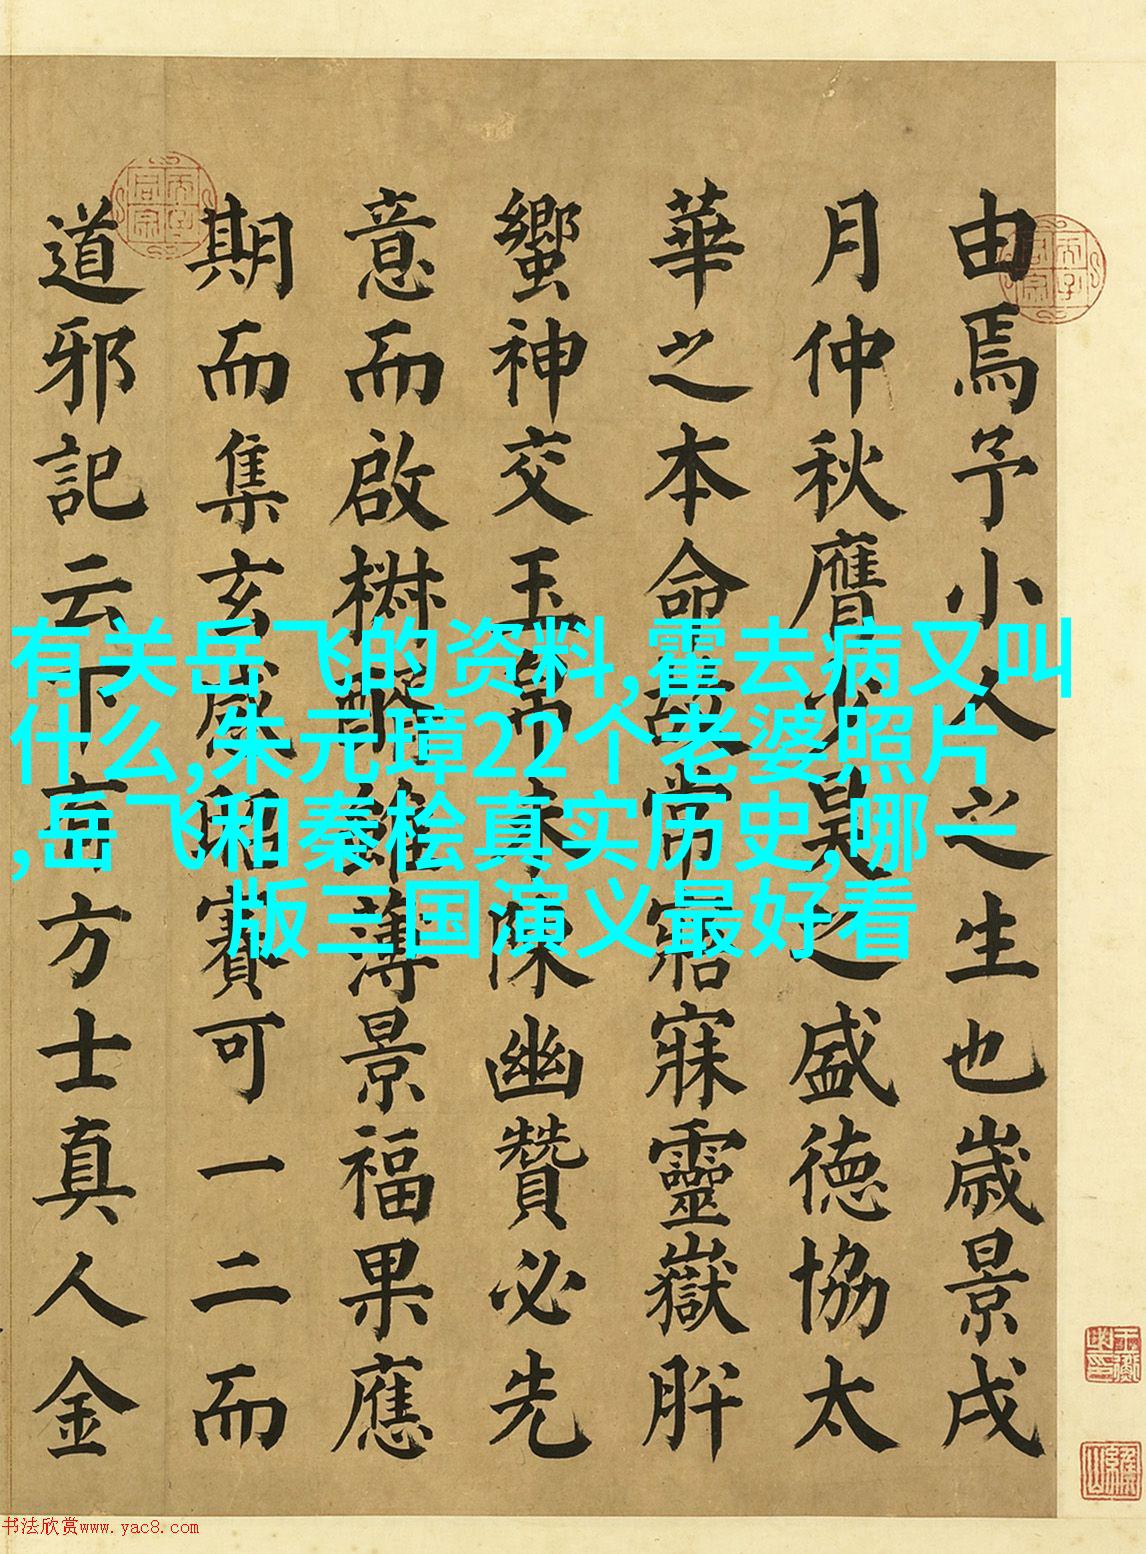 由焉予小人之生也歲景戌
月仲秋膺少昊之盛德協太
華之本命故常寤寐靈嶽肸
蠁神交玉帛未陳幽贊必先
意而啟椒醑雖薄景福果應
期而集玄感昭賽可一二而
道邪記云下有方士真人金
有关岳飞的资料,霍去病又叫
什么,朱元璋22个老婆照片
,岳飞和秦桧真实历史,哪一
版三国演义最好看
书法欣赏www.yac8.com